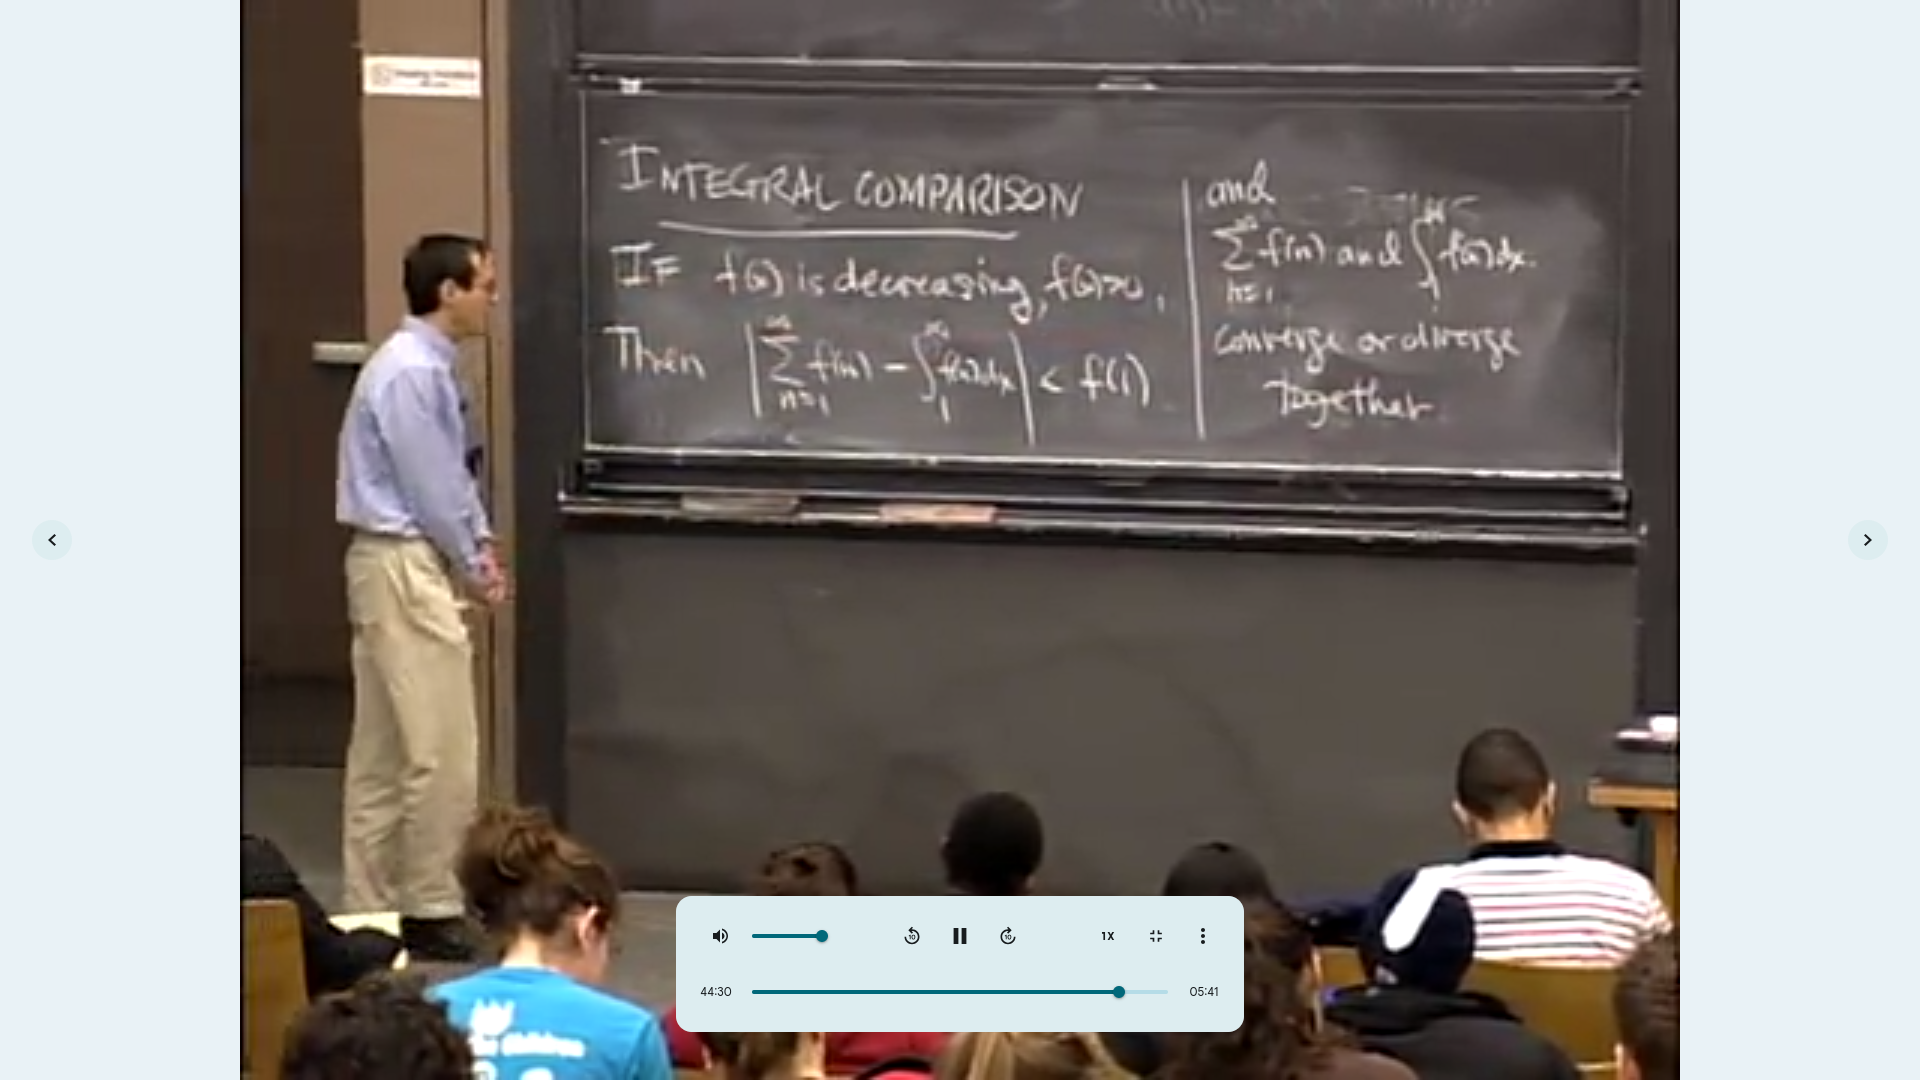 INTEGRAL COMPARISON
IF f(x) is decreasing, f(x)>0,
Then |∑_{n=1}^{∞} f(n) − ∫_1^∞ f(x)dx| < f(1)
and
∑_{n=1}^{∞} f(n) and ∫_1^∞ f(x)dx.
converge or diverge
together.
Children
1X
44:30
05:41